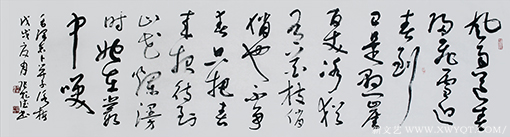 风雨送春
归飞雪迎
春到
已是悬崖
百丈冰犹
有花枝俏
俏也不争
春只把春
来报待到
山花烂漫
时她在丛
中笑
毛泽东卜算子咏梅
戊戌夏月
WWW.XWYQT.COM